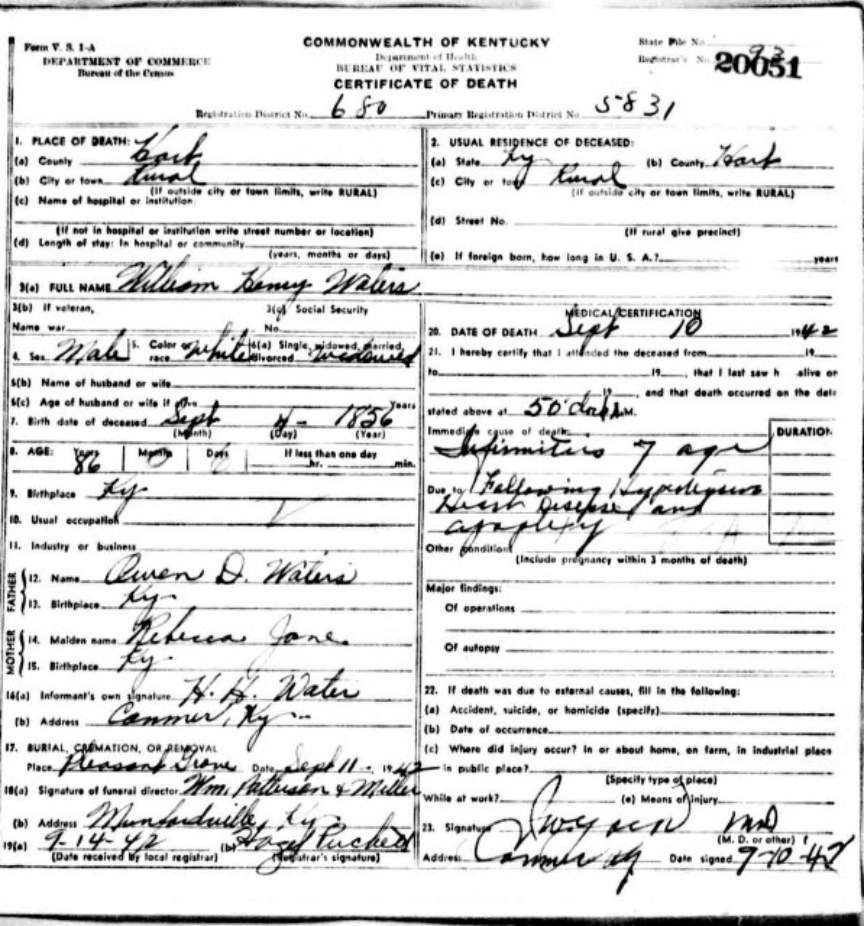 Form V. S. 1-A
DEPARTMENT OF COMMERCE
Bureau of the Census
COMMONWEALTH OF KENTUCKY
Department of Health
BUREAU OF VITAL STATISTICS
CERTIFICATE OF DEATH
State File No.
Registrar's No. 93
20051
Registration District No. 680 Primary Registration District No. 5831
1. PLACE OF DEATH:
(a) County Hart
(b) City or town Rural
(If outside city or town limits, write RURAL)
(c) Name of hospital or institution:
(If not in hospital or institution write street number or location)
(d) Length of stay: In hospital or community
(years, months or days)
2. USUAL RESIDENCE OF DECEASED:
(a) State Ky (b) County Hart
(c) City or town Rural
(If outside city or town limits, write RURAL)
(d) Street No.
(If rural give precinct)
(e) If foreign born, how long in U. S. A.? years
3(a) FULL NAME William Henry Waters
3(b) If veteran,
Name war
3(c) Social Security
No.
4. Sex Male 5. Color or race White 6(a) Single, widowed, married, divorced Widowed
6(b) Name of husband or wife
6(c) Age of husband or wife if alive Years
7. Birth date of deceased Sept 4 - 1856
(Month) (Day) (Year)
8. AGE: Years 86 Months 0 Days 6 If less than one day
hr. min.
9. Birthplace Ky
10. Usual occupation
11. Industry or business
FATHER
12. Name Owen D. Waters
13. Birthplace Ky
MOTHER
14. Maiden name Rebecca Jane
15. Birthplace Ky
16(a) Informant's own signature H. H. Water
(b) Address Canmer, Ky
17. BURIAL, CREMATION, OR REMOVAL
Place Pleasant Grove Date Sept 11 - 1942
18(a) Signature of funeral director Wm. Patterson & Miller
(b) Address Munfordville, Ky.
19(a) 9-14-42 (b) Hazel Puckett
(Date received by local registrar) (Registrar's signature)
MEDICAL CERTIFICATION
20. DATE OF DEATH Sept 10 1942
21. I hereby certify that I attended the deceased from 19
to 19 , that I last saw h alive on
19 , and that death occurred on the date
stated above at M.
Immediate cause of death
DURATION
Infirmities of age
Due to Following Hypertensive
Heart Disease and
apoplexy
Other conditions
(Include pregnancy within 3 months of death)
Major findings:
Of operations
Of autopsy
22. If death was due to external causes, fill in the following:
(a) Accident, suicide, or homicide (specify)
(b) Date of occurrence
(c) Where did injury occur? In or about home, on farm, in industrial place
in public place?
(Specify type of place)
While at work? (e) Means of injury
23. Signature MD
(M. D. or other)
Address Canmer Ky Date signed 9-10-42